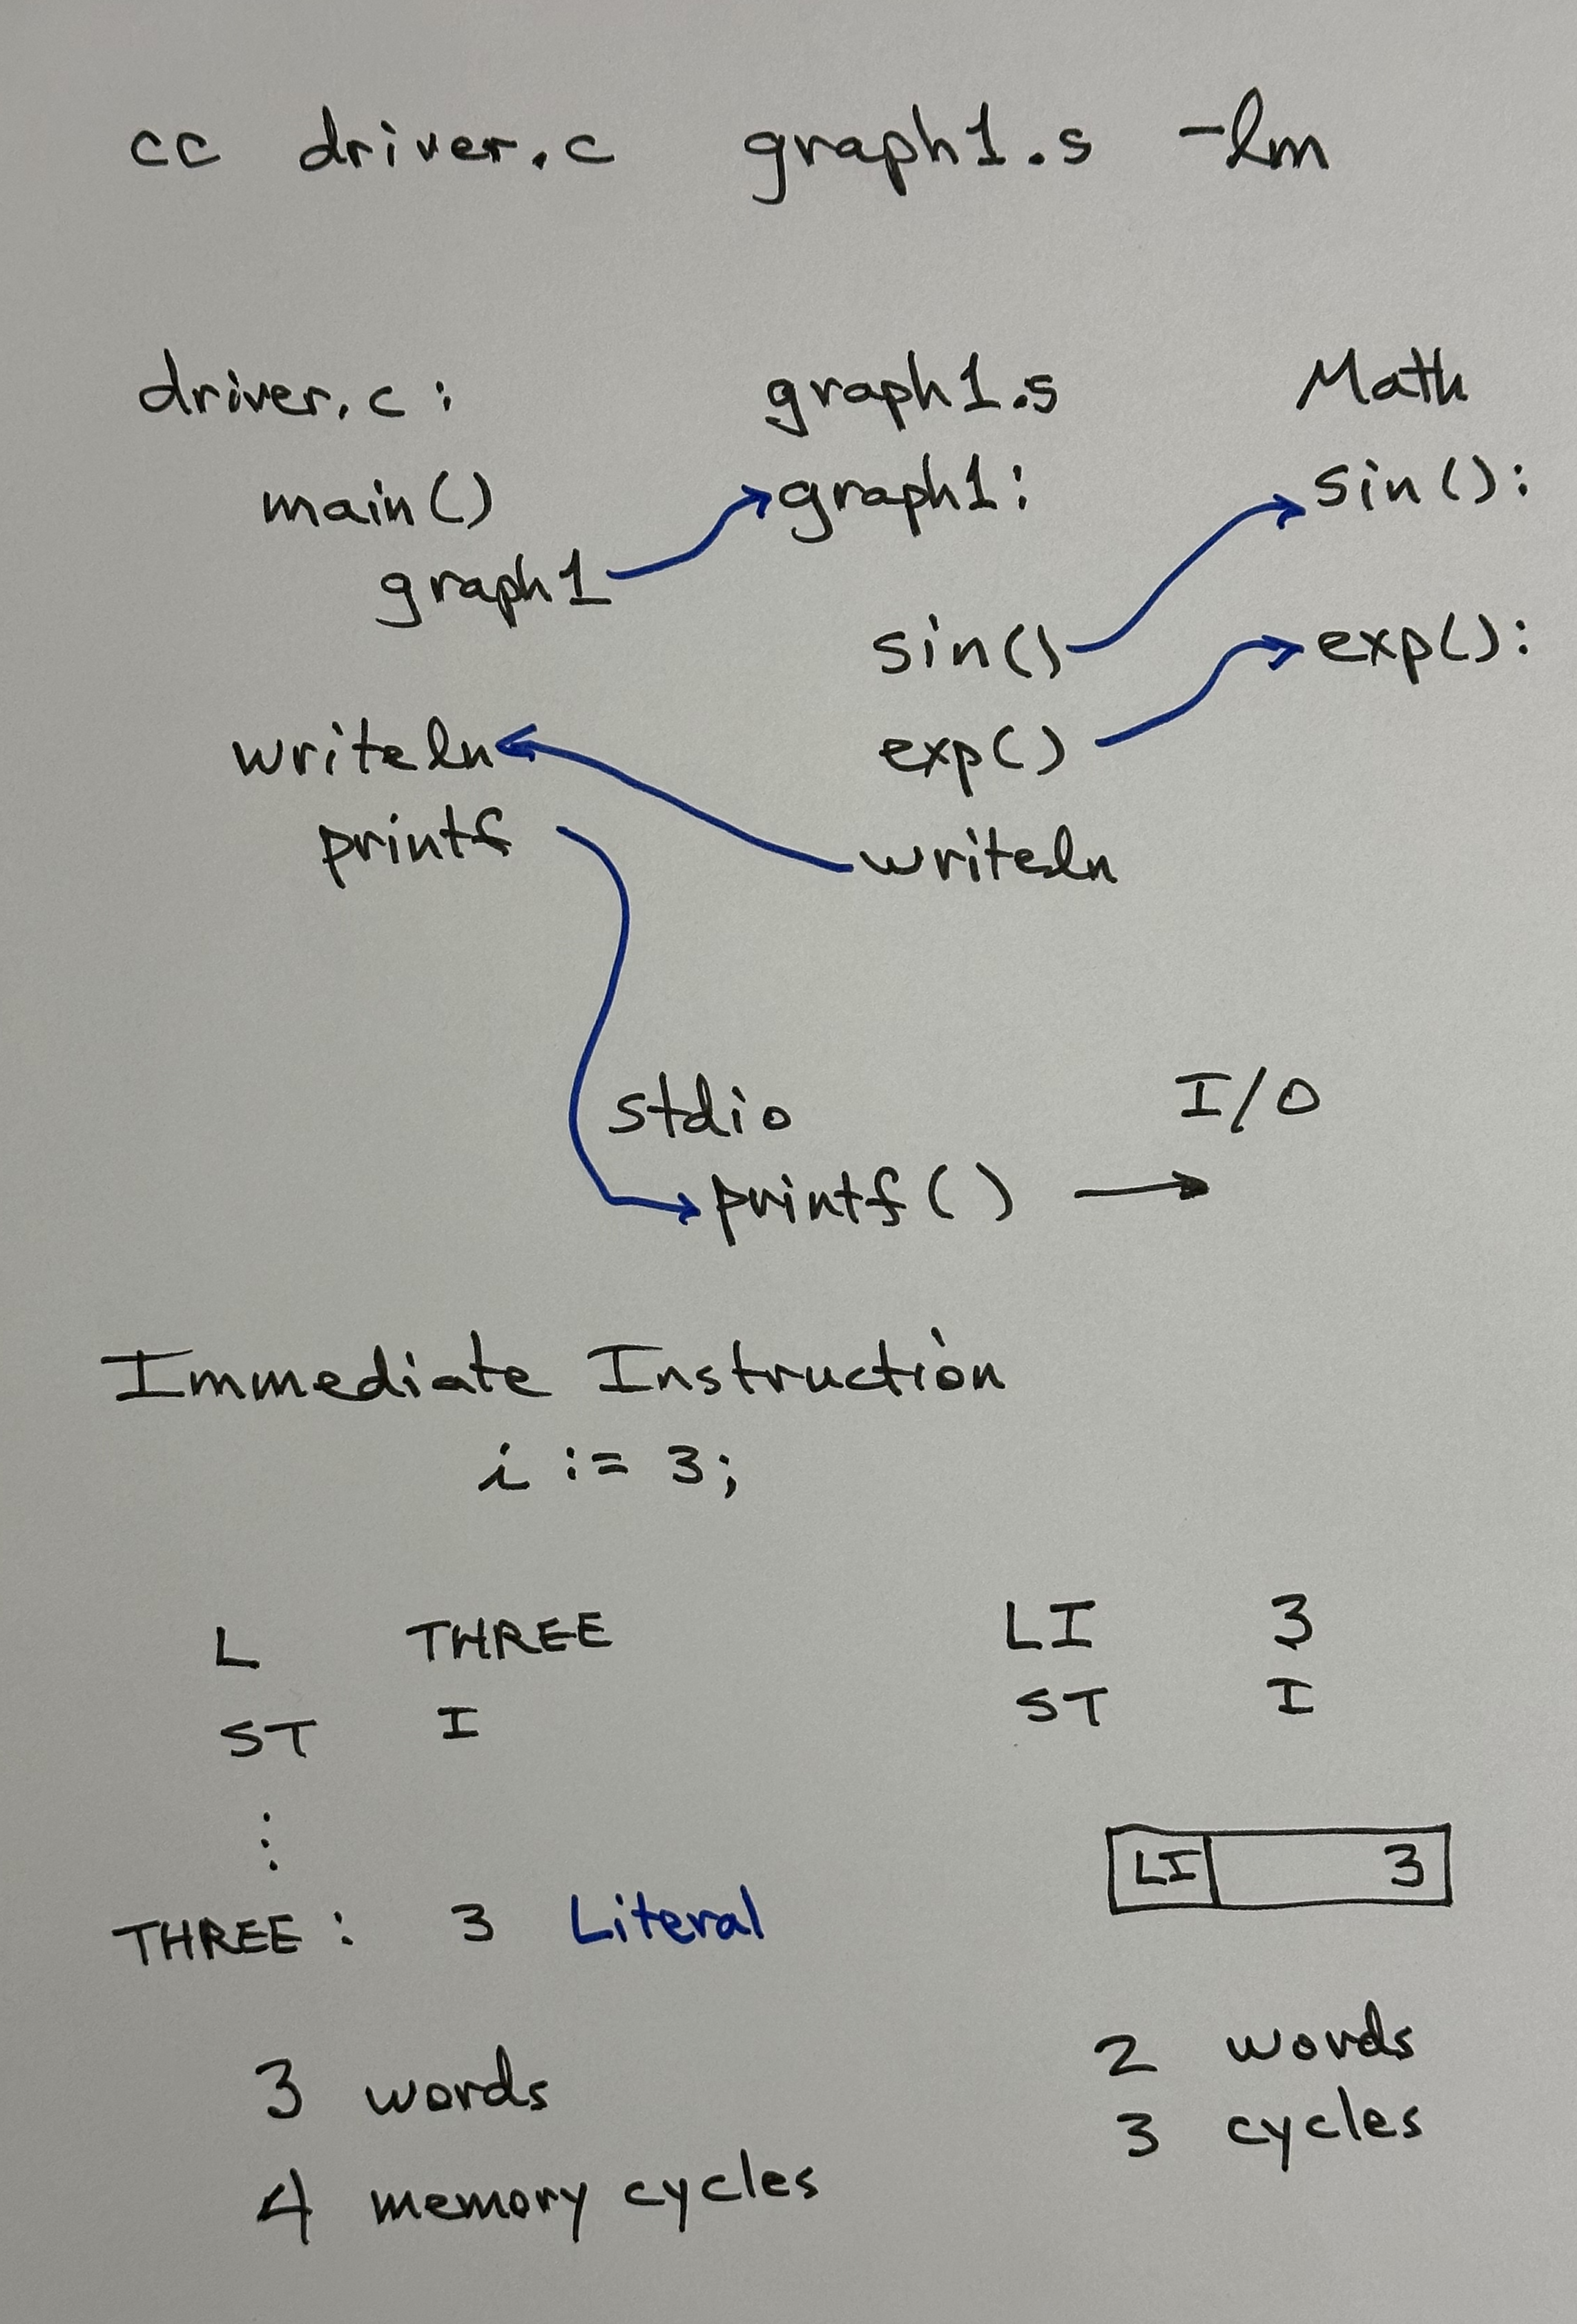 cc driver.c graph1.s -lm
driver.c: graph1.s Math
main() graph1: sin():
graph1
sin() exp():
writeln exp()
printf writeln
stdio I/O
printf()
Immediate Instruction
i := 3;
L THREE LI 3
ST I ST I
:
LI 3
THREE: 3 Literal
3 words 2 words
4 memory cycles 3 cycles